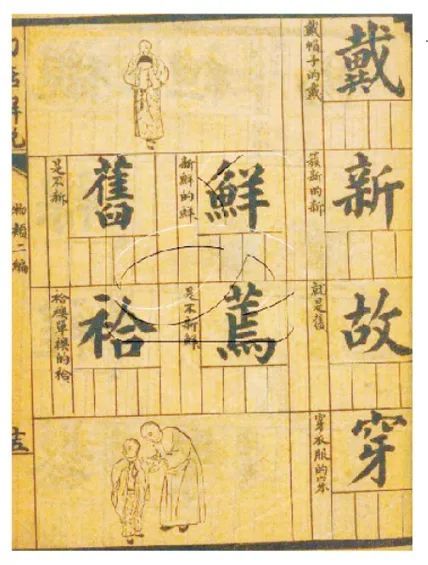 戴
戴帽子的戴
新
簇新的新
故
就是舊
穿
穿衣服的穿
鮮
新鮮的鮮
蔫
是不新鮮
舊
是不新
袷
袷襖單襖的袷
解說
物類二編